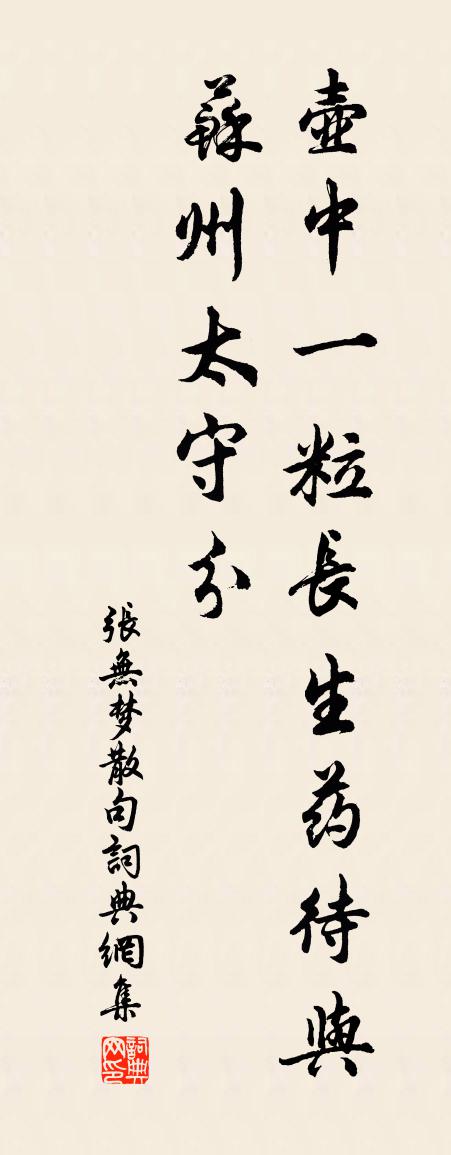 壺中一粒長生药待與
蘇州太守分
張無梦散句詞典網集
詞典网印